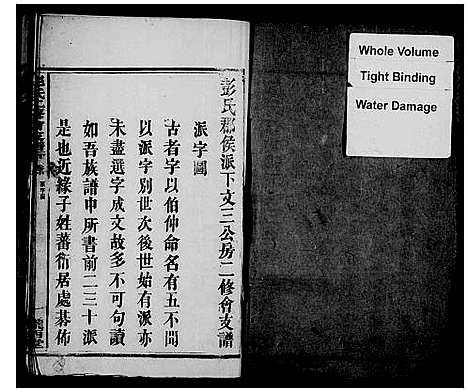 彭氏郡侯派下文三公房二修會支譜
派字圖
古者字以伯仲命名有五不聞
以派字別世次後世始有派亦
未盡選字成文故多不可句讀
如吾族譜中所書前二三十派
是也近緣子姓蕃衍居處棊佈
Whole Volume
Tight Binding
Water Damage